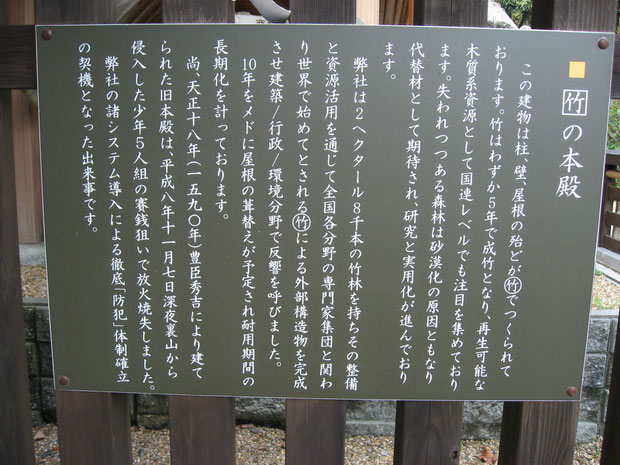 竹の本殿
この建物は柱、壁、屋根の殆どが竹でつくられて
おります。竹はわずか5年で成竹となり、再生可能な
木質系資源として国連レベルでも注目を集めており
ます。失われつつある森林は砂漠化の原因ともなり
代替材として期待され、研究と実用化が進んでおり
ます。
弊社は2ヘクタール8千本の竹林を持ちその整備
と資源活用を通じて全国各分野の専門家集団と関わ
り世界で始めてとされる竹による外部構造物を完成
させ建築/行政/環境分野で反響を呼びました。
10年をメドに屋根の葺替えが予定され耐用期間の
長期化を計っております。
尚、天正十八年(一五九〇年)豊臣秀吉により建て
られた旧本殿は、平成八年十一月七日深夜裏山から
侵入した少年5人組の賽銭狙いで放火焼失しました。
弊社の諸システム導入による徹底「防犯」体制確立
の契機となった出来事です。